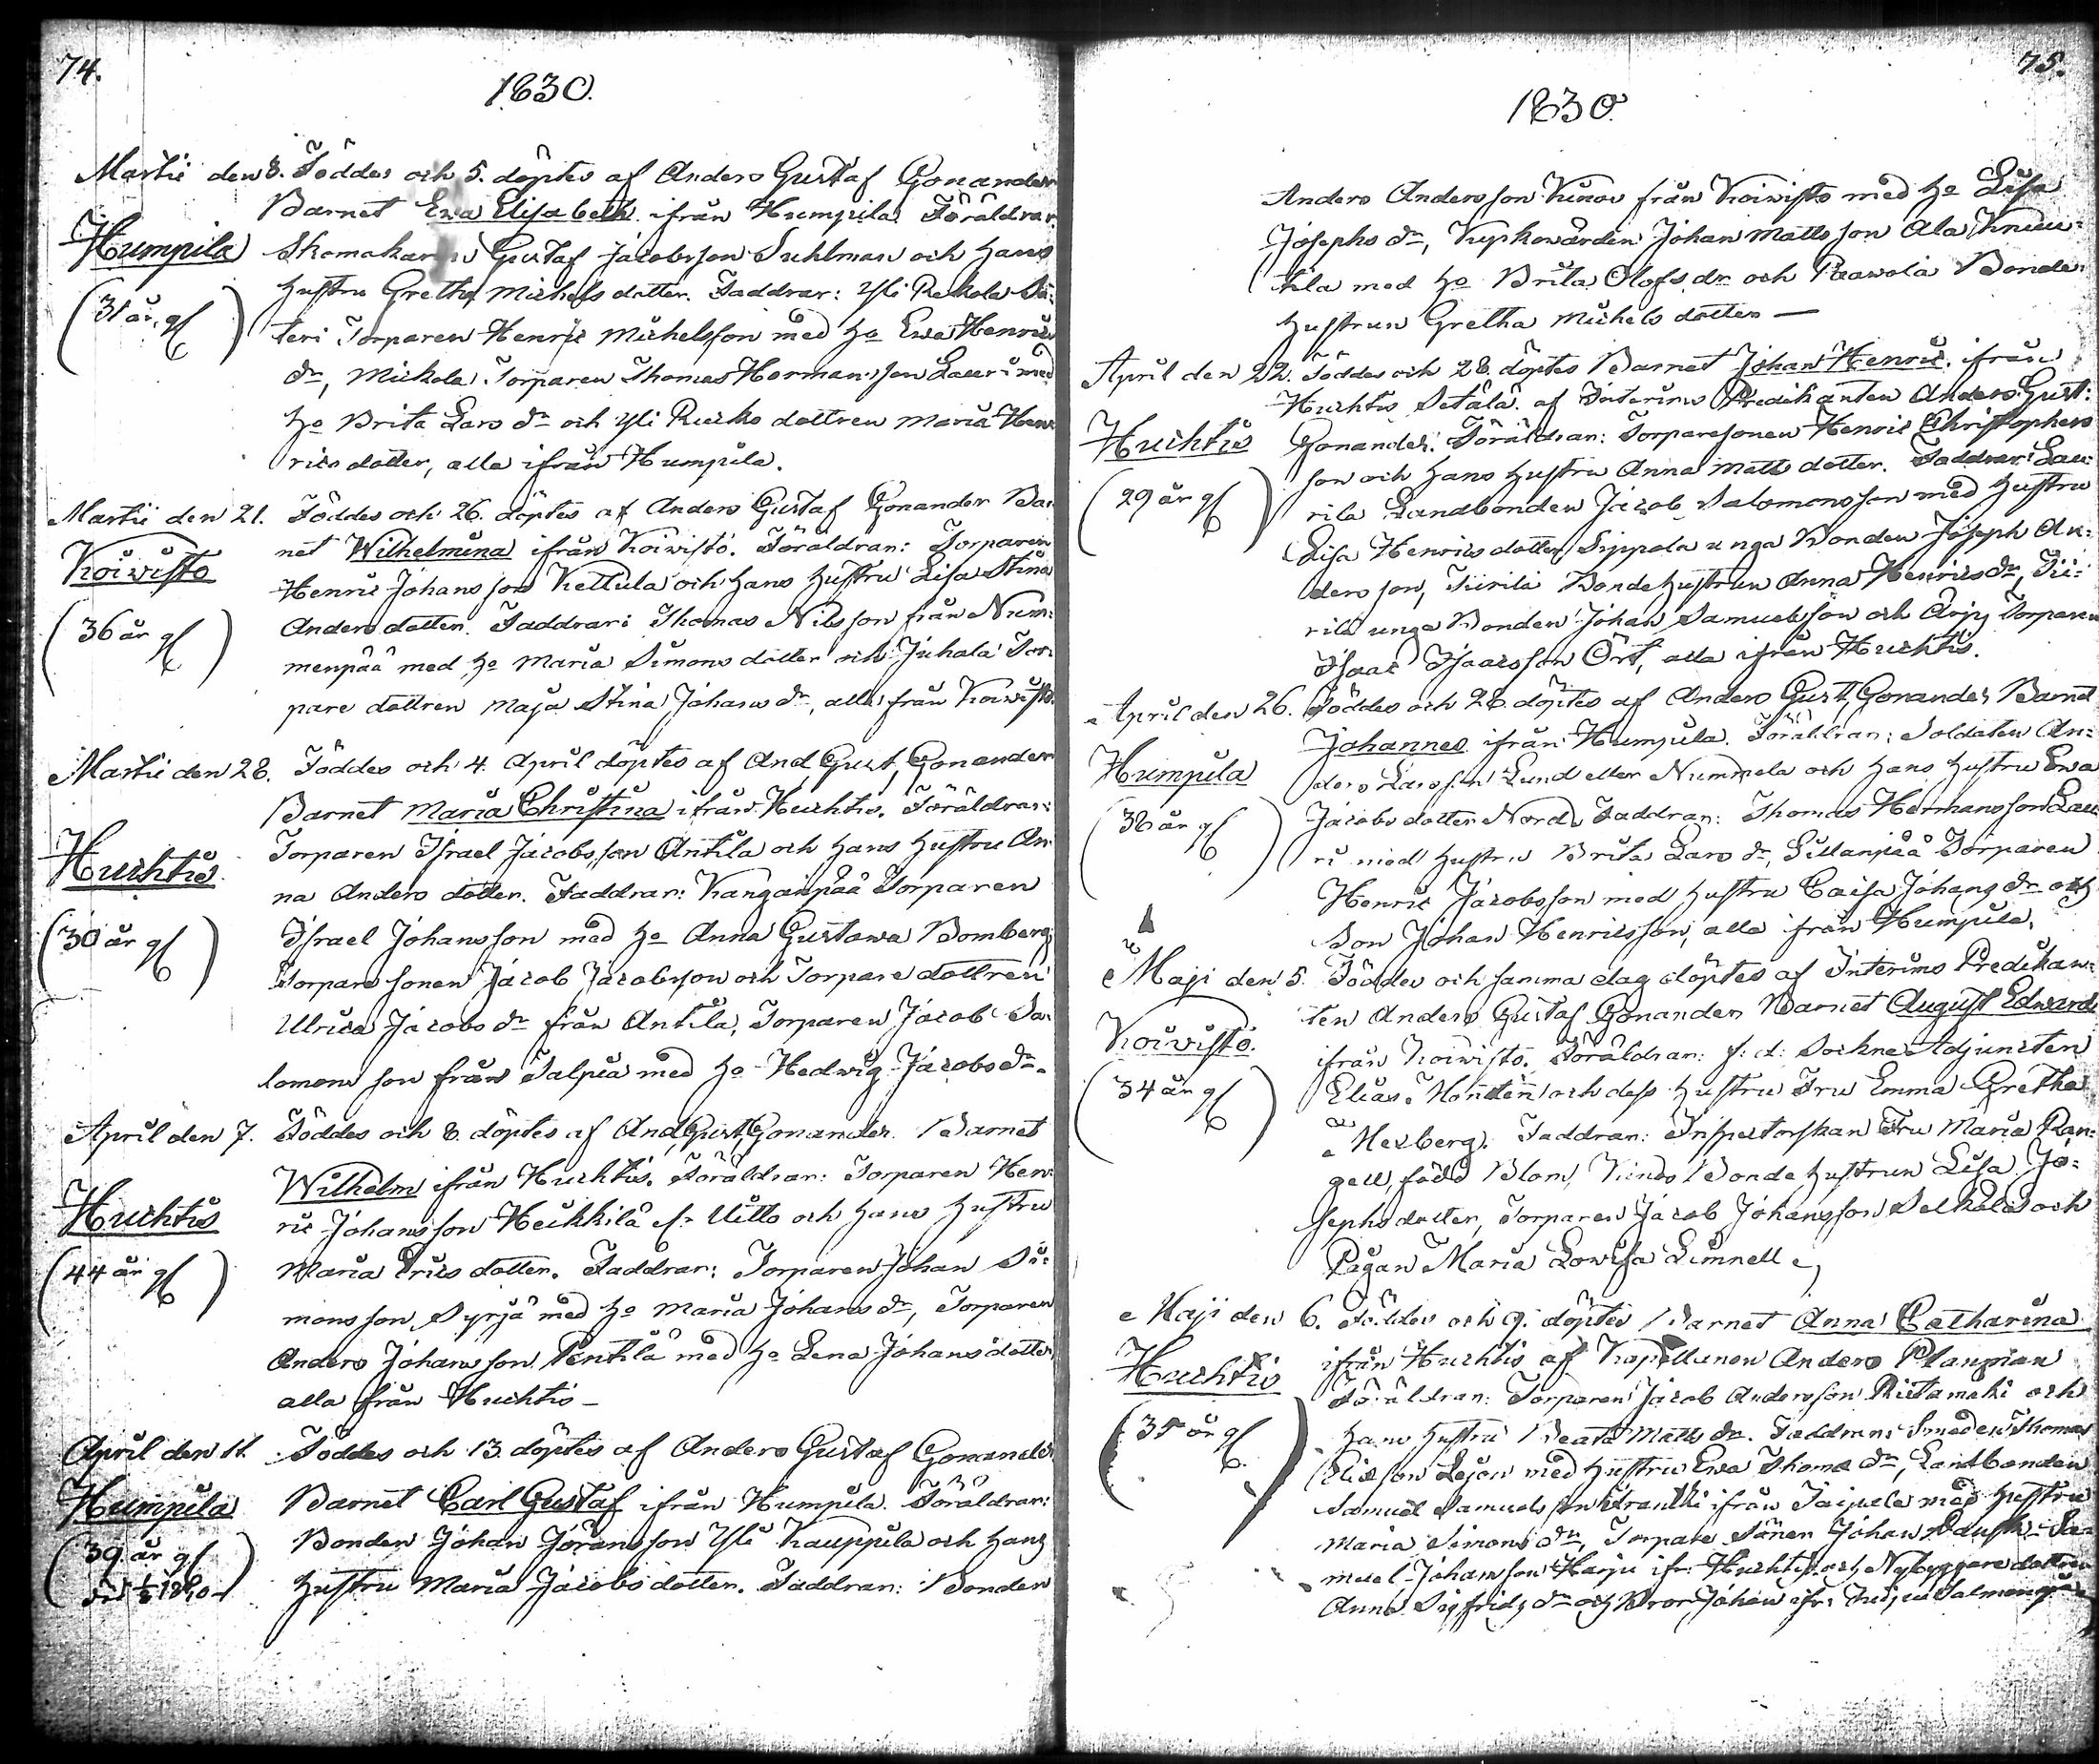 74.
1830.
Martii den 3. Föddes och 5. döptes af Anders Gustaf Gonander
Barnet Ewa Elisabeth ifrån Humpila. Föräldrar:
Humpila
Skomakaren Gustaf Jacobsson Suhlman och Hans
Hustru Gretha Michels dotter. Faddrar: Yli Rekola Sä:
(31 år gl)
teri Torparen Henric Michelsson med Ho Ewa Henrics
dr, Mickola Torparen Thomas Hermansson Lauri med
Ho Brita Lars dr och Yli Rucko dottren Maria Hen:
rics dotter, alla ifrån Humpila.
Martii den 21. Föddes och 26. döptes af Anders Gustaf Gonander Bar:
net Wilhelmina ifrån Koiwisto. Föräldrar: Torparen
Koiwisto
Henric Johansson Kettula och Hans Hustru Lisa Stina
(36 år gl)
Anders dotter. Faddrar: Thomas Nilsson från Num:
menpää med Ho Maria Simons dotter och Juhala Tor:
pare dottren Maja Stina Johans dr, alla från Koiwisto.
Martii den 28. Föddes och 4. April döptes af And. Gust. Gonander
Barnet Maria Christina ifrån Huchtis. Föräldrar:
Huchtis
Torparen Israel Jacobsson Antila och Hans Hustru An:
na Anders dotter. Faddrar: Kangaispää Torparen
(30 år gl)
Israel Johansson med Ho Anna Gustawa Bomberg,
Torpare sonen Jacob Jacobsson och Torpare dottren
Ulrica Jacobs dr från Antila, Torparen Jacob Sa:
lomons son från Talpia med Ho Hedwig Jacobs dr.
April den 7. Föddes och 8. döptes af And. Gust. Gonander Barnet
Wilhelm ifrån Huchtis. Föräldrar: Torparen Hen:
Huchtis
ric Johansson Heikkilä l. Uitto och Hans Hustru
(44 år gl)
Maria Erics dotter. Faddrar: Torparen Johan Si:
mons son Syrjä med Ho Maria Johans dr, Torparen
Anders Johansson Pentilä med Ho Lena Johans dotter,
alla från Huchtis
April den 11. Föddes och 13. döptes af Anders Gustaf Gonander
Humpila
Barnet Carl Gustaf ifrån Humpila. Föräldrar:
Bonden Johan Jöransson Yli Kauppila och Hans
(39 år gl
Hustru Maria Jacobs dotter. Faddrar: Bonden
75.
1830.
Anders Andersson Kinos från Koiwisto med Ho Lisa
Josephs dr, Kyrkowärden Johan Mattsson Ala Knuu:
tila med Ho Brita Olofs dr och Paawola Bonde:
hustrun Gretha Michels dotter
April den 22. Föddes och 28. döptes Barnet Johan Henric ifrån
Huchtis Setälä af Interims Predikanten Anders Gust:
Huchtis
Gonander. Föräldrar: Torparesonen Henric Christophers
son och Hans Hustru Anna Matts dotter. Faddrar: Lau:
(29 år gl)
rila Landbonden Jacob Salomonsson med Hustru
Lisa Henrics dotter, Sippola unga Bonden Joseph An:
ders son, Piirilä Bonde Hustrun Anna Henrics dr, Pii:
rilä unga Bonden Johan Samuelsson och Torparen
Isaac Isaacsson Ört, alla ifrån Huchtis.
April den 26. Föddes och 28. döptes af Anders Gust. Gonander Barnet
Johannes ifrån Humpila. Föräldrar: Soldaten An:
Humpila
ders Larsson Lund eller Nummela och Hans Hustru Ewa
(38 år gl)
Jacobs dotter Nord. Faddrar: Thomas Hermansson Lau:
ri med Hustru Brita Lars dr, Sillanpää Torparen
Henric Jacobsson med Hustru Caisa Johans dr och
Son Johan Henricsson, alla ifrån Humpila.
Maji den 5. Föddes och samma dag döptes af Interims Predikan:
ten Anders Gustaf Gonander Barnet August Edward
Koiwisto.
ifrån Koiwisto. Föräldrar: f: d: Sockne Adjuncten
(34 år gl)
Elias och dess Hustru Fru Emma Gretha
Hexberg. Faddrar: Inspectorskan Fru Maria Ren:
gell, född Blom, Kinos Bonde hustrun Lisa Jo:
sephs dotter, Torparen Jacob Johansson Selkälä och
Pigan Maria Lowisa Limnell
Maji den 6. Föddes och 9. döptes Barnet Anna Catharina
ifrån Huchtis af Kapellanen Anders Planman
Huchtis
Föräldrar: Torparen Jacob Andersson Rietamäki och
(35 år gl)
Hans Hustru Beata Matts dr. Faddrar: Smeden Thomas
Ericsson Lejon med Hustru Ewa Thoms dr, Landbonden
Samuel Samuelsson ifrån Taipale med Hustru
Maria Simons dr, Torpare Sonen Johan Sa:
muel Johansson Harju ifr: Huchtis och Nybyggare dottren
Anna Sigfrids dr och Bror Johan ifr: